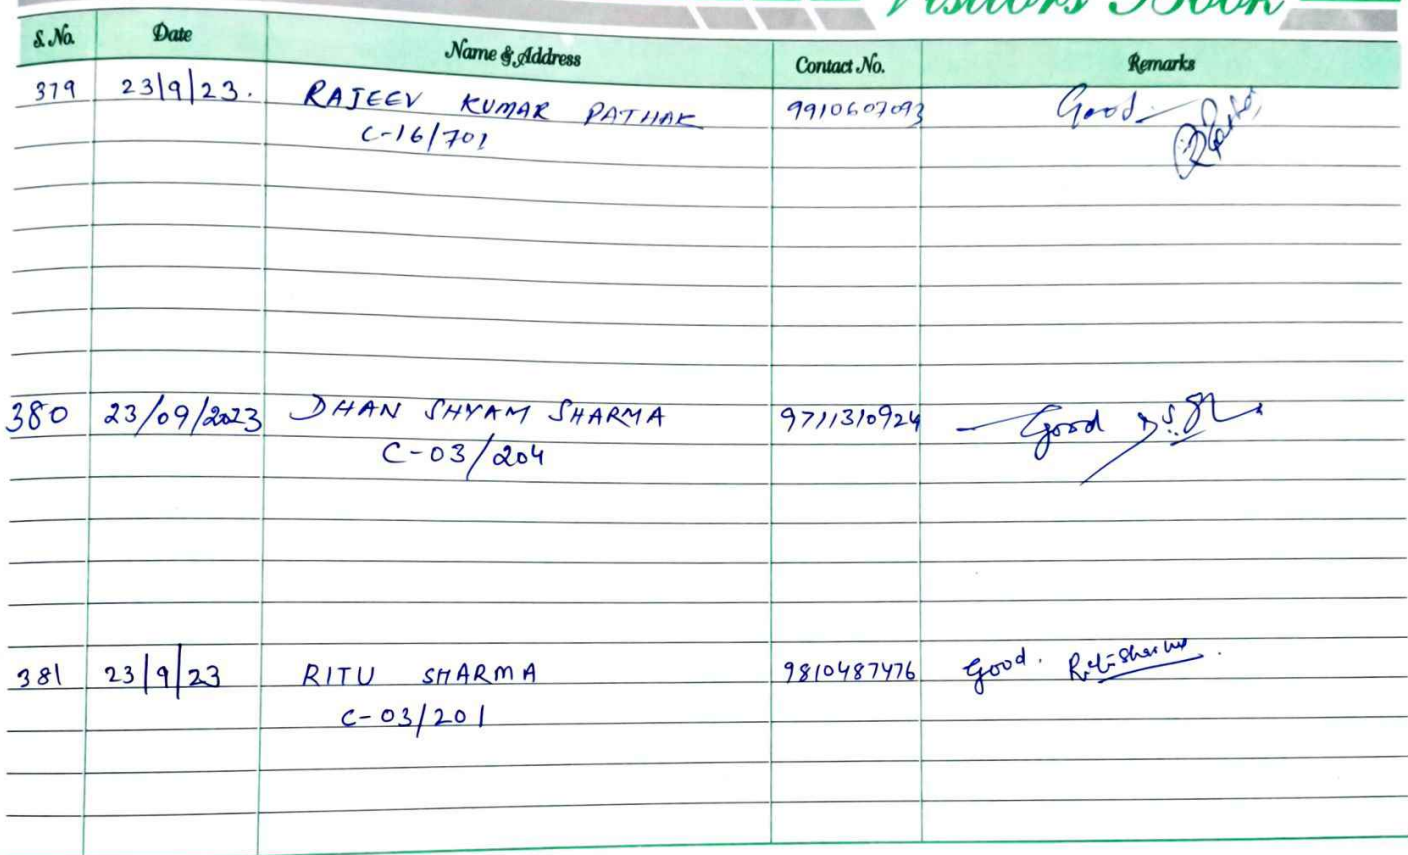 Visitors Book
S. No. Date Name & Address Contact No. Remarks
379 23/9/23. RAJEEV KUMAR PATHAK 9910607093 Good
C-16/701
380 23/09/2023 DHAN SHYAM SHARMA 9711310924 Good
C-03/204
381 23/9/23 RITU SHARMA 9810487476 Good. Ritu Sharma
C-03/201